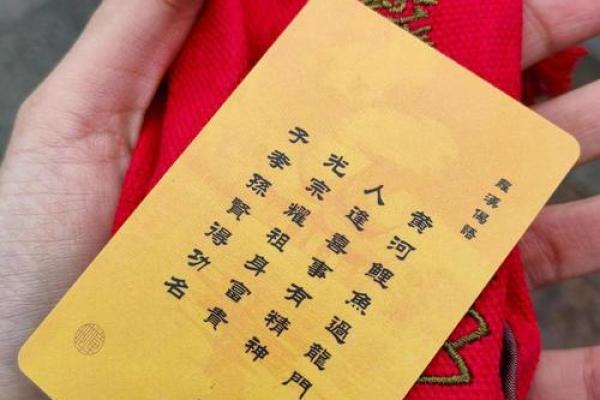 羅漢偈語
黃河鯉魚過龍門
人逢喜事有精神
光宗耀祖身富貴
子孝孫賢得功名